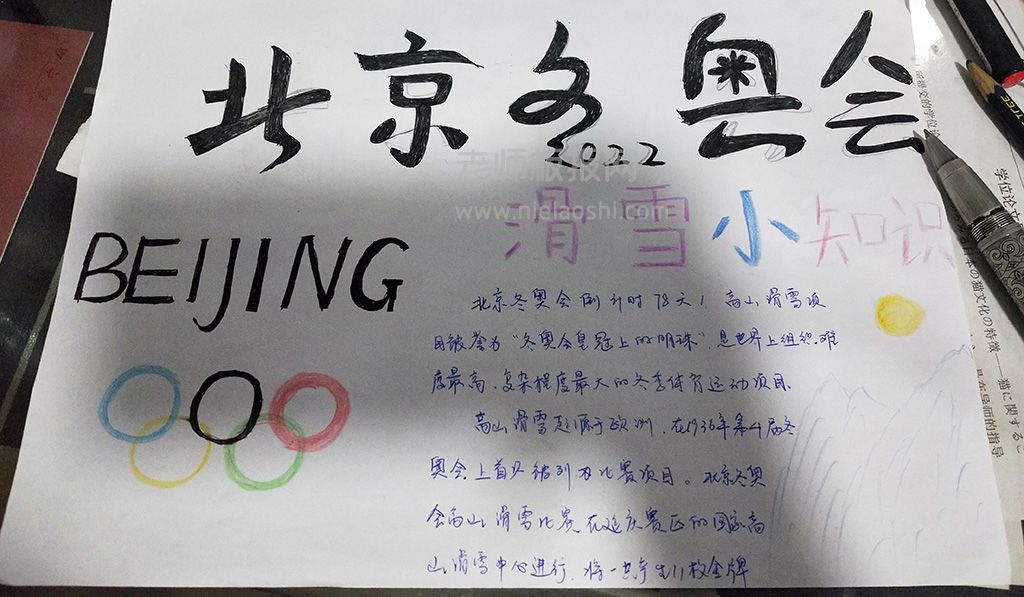 北京冬奥会
2022
老师板报网
www.nielaoshi.com
滑雪小知识
BEIJING
北京冬奥会倒计时78天！高山滑雪项
目被誉为“冬奥会皇冠上的明珠”，是世界上组织难
度最高、复杂程度最大的冬季体育运动项目.
高山滑雪起源于欧洲，在1936年第4届冬
奥会上首次被列为比赛项目。北京冬奥
会高山滑雪比赛在延庆赛区的国家高
山滑雪中心进行，将一共产生11枚金牌
TREE
学位论文
日本の猫文化の特徴——猫に関するこ
导师的指导